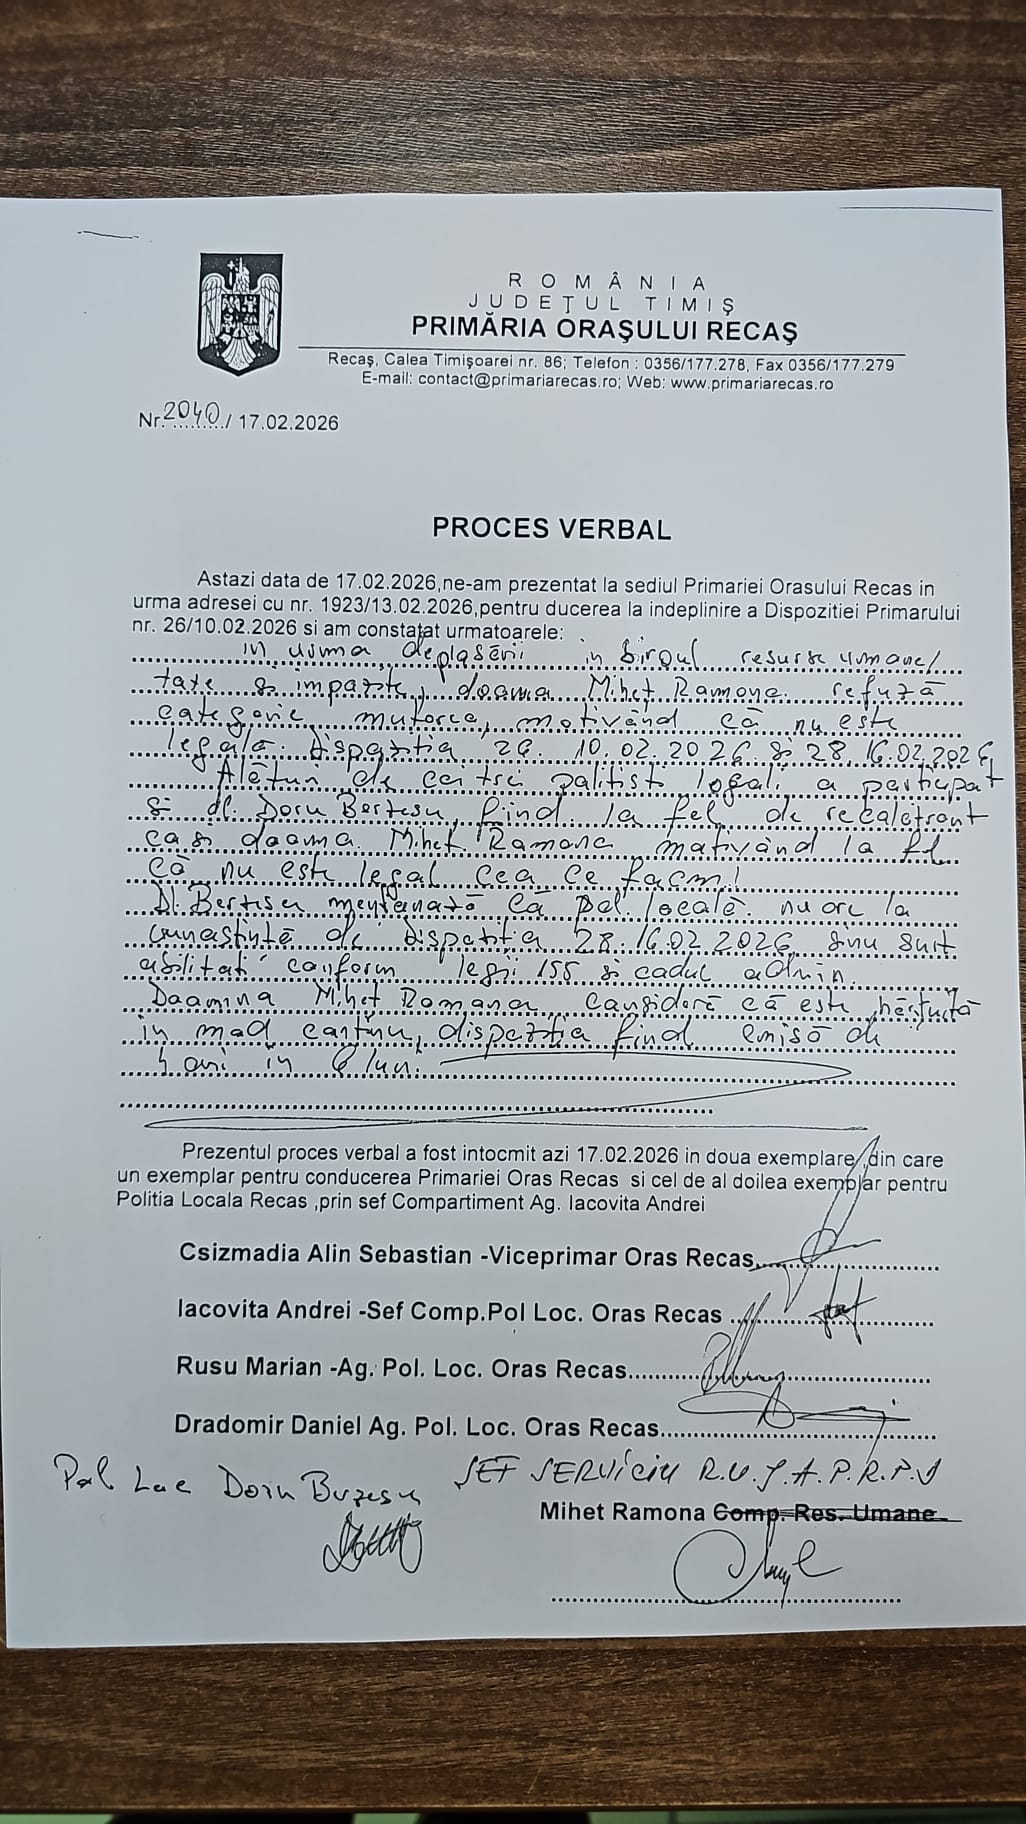 ROMÂNIA
JUDEŢUL TIMIŞ
PRIMĂRIA ORAŞULUI RECAŞ
Recaş, Calea Timişoarei nr. 86; Telefon : 0356/177.278, Fax 0356/177.279
E-mail: contact@primariarecas.ro; Web: www.primariarecas.ro
Nr. 2040 / 17.02.2026
PROCES VERBAL
Astazi data de 17.02.2026,ne-am prezentat la sediul Primariei Orasului Recas in
urma adresei cu nr. 1923/13.02.2026,pentru ducerea la indeplinire a Dispozitiei Primarului
nr. 26/10.02.2026 si am constatat urmatoarele:
in urma deplasării in biroul resurse umane/
taxe și impozite, doamna Miheț Ramona refuză
categoric mutarea, motivând că nu este
legală dispoziția 26. 10.02.2026 și 28 16.02.2026
Alături de cei trei polițiști locali a participat
și dl. Doru fiind la fel de recalcitrant
ca și doamna Miheț Ramona motivând la fel
că nu este legal ceea ce facem!
Dl. menționează că pol. locală nu are la
cunoștință de dispoziția 28. 16.02.2026 și nu sunt
abilitați conform legii 155 și codul admin.
Doamna Miheț Ramona consideră că este hărțuită
in mod continu, dispoziția fiind emisă de
4 ori in 6 luni.
Prezentul proces verbal a fost intocmit azi 17.02.2026 in doua exemplare ,din care
un exemplar pentru conducerea Primariei Oras Recas si cel de al doilea exemplar pentru
Politia Locala Recas ,prin sef Compartiment Ag. Iacovita Andrei
Csizmadia Alin Sebastian -Viceprimar Oras Recas
Iacovita Andrei -Sef Comp.Pol Loc. Oras Recas
Rusu Marian -Ag. Pol. Loc. Oras Recas
Dradomir Daniel Ag. Pol. Loc. Oras Recas
Pol Loc
ȘEF SERVICIU
Mihet Ramona Comp. Res. Umane